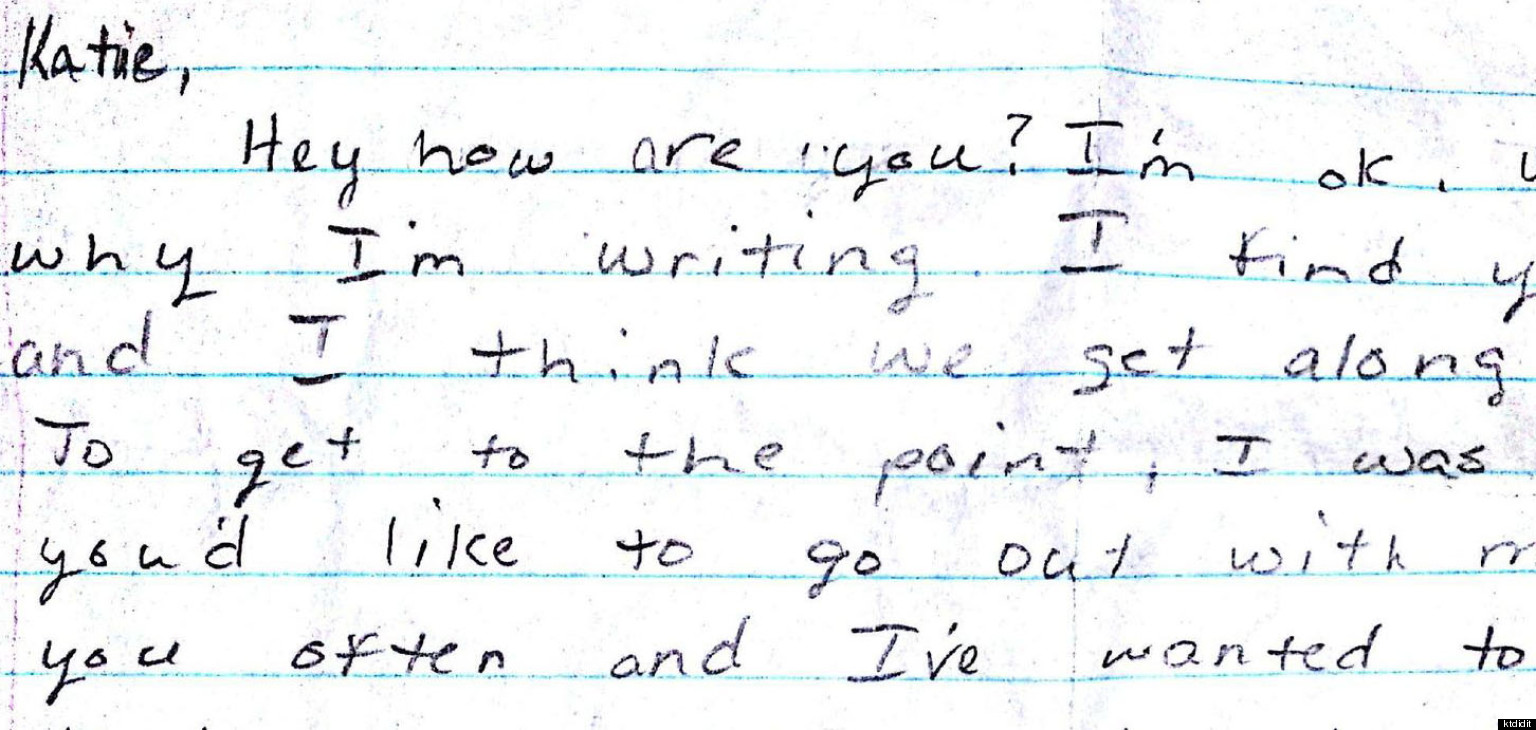 Katie,
Hey how are you? I'm ok.
why I'm writing. I find
and I think we get along
To get to the point, I was
you'd like to go out with
you often and I've wanted to
ktdidit